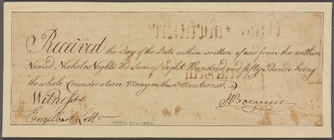 Received the Day of the Date within written of and from the within
Named Nicholas Veghte the Sum of Eight Hundred and fifty Pounds being
the whole Consideration Mony within Mentioned
Witness